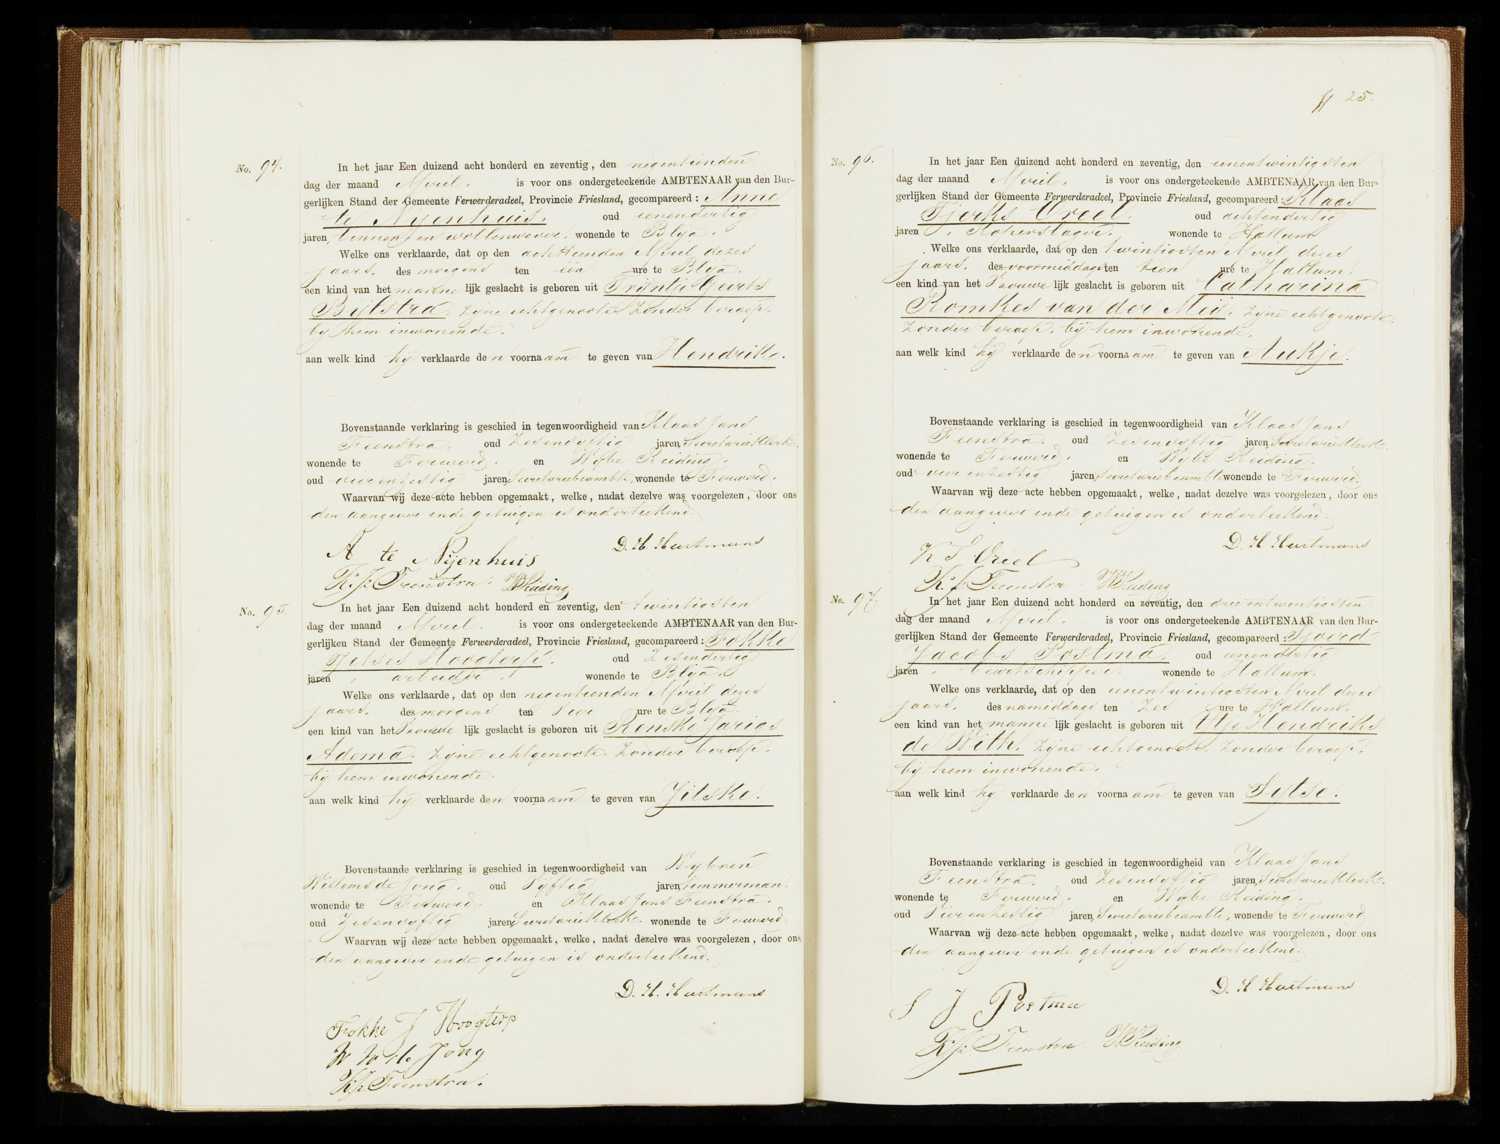 No. 94.
In het jaar Een duizend acht honderd en zeventig, den negentienden
dag der maand April. is voor ons ondergeteekende AMBTENAAR van den Bur-
gerlijken Stand der Gemeente Ferwerderadeel, Provincie Friesland, gecompareerd: Anne
te Nijenhuis. oud eenendertig
jaren, linnen en wollenwever. wonende te Blija.
Welke ons verklaarde, dat op den achttienden April dezes
jaars. des morgens ten een ure te Blija.
een kind van het manne lijk geslacht is geboren uit Trijntje Geerts
Bijlstra, zijne echtgenoote zonder beroep.
bij hem inwonende.
aan welk kind hij verklaarde den voornaam te geven van Hendrik.
Bovenstaande verklaring is geschied in tegenwoordigheid van Klaas Jans
Feenstra. oud zesendertig jaren, Secretarieklerk
wonende te Ferwerd. en Wybe Reiding.
oud vierenzestig jaren, Secretariebeambte, wonende te Ferwerd.
Waarvan wij deze acte hebben opgemaakt, welke, nadat dezelve was voorgelezen, door ons
den aangever ende getuigen is onderteekend.
D. H. Hartmans
A te Nijenhuis
K. J. Feenstra. W Reiding
No. 95
In het jaar Een duizend acht honderd en zeventig, den twintigsten
dag der maand April. is voor ons ondergeteekende AMBTENAAR van den Bur-
gerlijken Stand der Gemeente Ferwerderadeel, Provincie Friesland, gecompareerd: Fokke
Jelses Hoogterp. oud zesendertig
jaren, arbeider wonende te Blija
Welke ons verklaarde, dat op den negentienden April dezes
jaars. des morgens ten vier ure te Blija
een kind van het Vrouwe lijk geslacht is geboren uit Renske Jarigs
Adema. zijne echtgenoote zonder beroep.
bij hem inwonende.
aan welk kind hij verklaarde den voornaam te geven van Jitske.
Bovenstaande verklaring is geschied in tegenwoordigheid van Wybren
Willems de Jong. oud vijftig jaren, timmerman.
wonende te Ferwerd en Klaas Jans Feenstra.
oud zesendertig jaren, Secretarieklerk. wonende te Ferwerd
Waarvan wij deze acte hebben opgemaakt, welke, nadat dezelve was voorgelezen, door ons
den aangever ende getuigen is onderteekend.
D. H. Hartmans
Fokke J Hoogterp
W W de Jong
K. J. Feenstra.
25.
No. 96.
In het jaar Een duizend acht honderd en zeventig, den eenentwintigsten
dag der maand April. is voor ons ondergeteekende AMBTENAAR van den Bur-
gerlijken Stand der Gemeente Ferwerderadeel, Provincie Friesland, gecompareerd: Klaas
Tjerks Oreel. oud achtendertig
jaren wonende te Hallum
Welke ons verklaarde, dat op den twintigsten April dezes
jaars. des voormiddags ten tien ure te Hallum.
een kind van het Vrouwe lijk geslacht is geboren uit Catharina
Romkes van der Mei. zijne echtgenoote,
zonder beroep. bij hem inwonende.
aan welk kind hij verklaarde den voornaam te geven van Aukje.
Bovenstaande verklaring is geschied in tegenwoordigheid van Klaas Jans
Feenstra. oud zesendertig jaren, Secretarieklerk
wonende te Ferwerd. en Wybe Reiding.
oud vierenzestig jaren, Secretariebeambte wonende te Ferwerd.
Waarvan wij deze acte hebben opgemaakt, welke, nadat dezelve was voorgelezen, door ons
den aangever ende getuigen is onderteekend.
D. H. Hartmans
K T Oreel
K. J. Feenstra W Reiding
No. 97
In het jaar Een duizend acht honderd en zeventig, den drieentwintigsten
dag der maand April. is voor ons ondergeteekende AMBTENAAR van den Bur-
gerlijken Stand der Gemeente Ferwerderadeel, Provincie Friesland, gecompareerd: Sjoerd
Jacobs Postma. oud eenendertig
jaren wonende te Hallum.
Welke ons verklaarde, dat op den eenentwintigsten April dezes
jaars. des namiddags ten zes ure te Hallum.
een kind van het manne lijk geslacht is geboren uit Hendriks
de With. zijne echtgenoote, zonder beroep.
bij hem inwonende.
aan welk kind hij verklaarde den voornaam te geven van Sytse.
Bovenstaande verklaring is geschied in tegenwoordigheid van Klaas Jans
Feenstra. oud zesendertig jaren, Secretarieklerk.
wonende te Ferwerd. en Wybe Reiding.
oud Vierenzestig jaren, Secretariebeambte, wonende te Ferwerd
Waarvan wij deze acte hebben opgemaakt, welke, nadat dezelve was voorgelezen, door ons
den aangever ende getuigen is onderteekend.
D. H Hartmans
S J Postma
K. J. Feenstra W Reiding